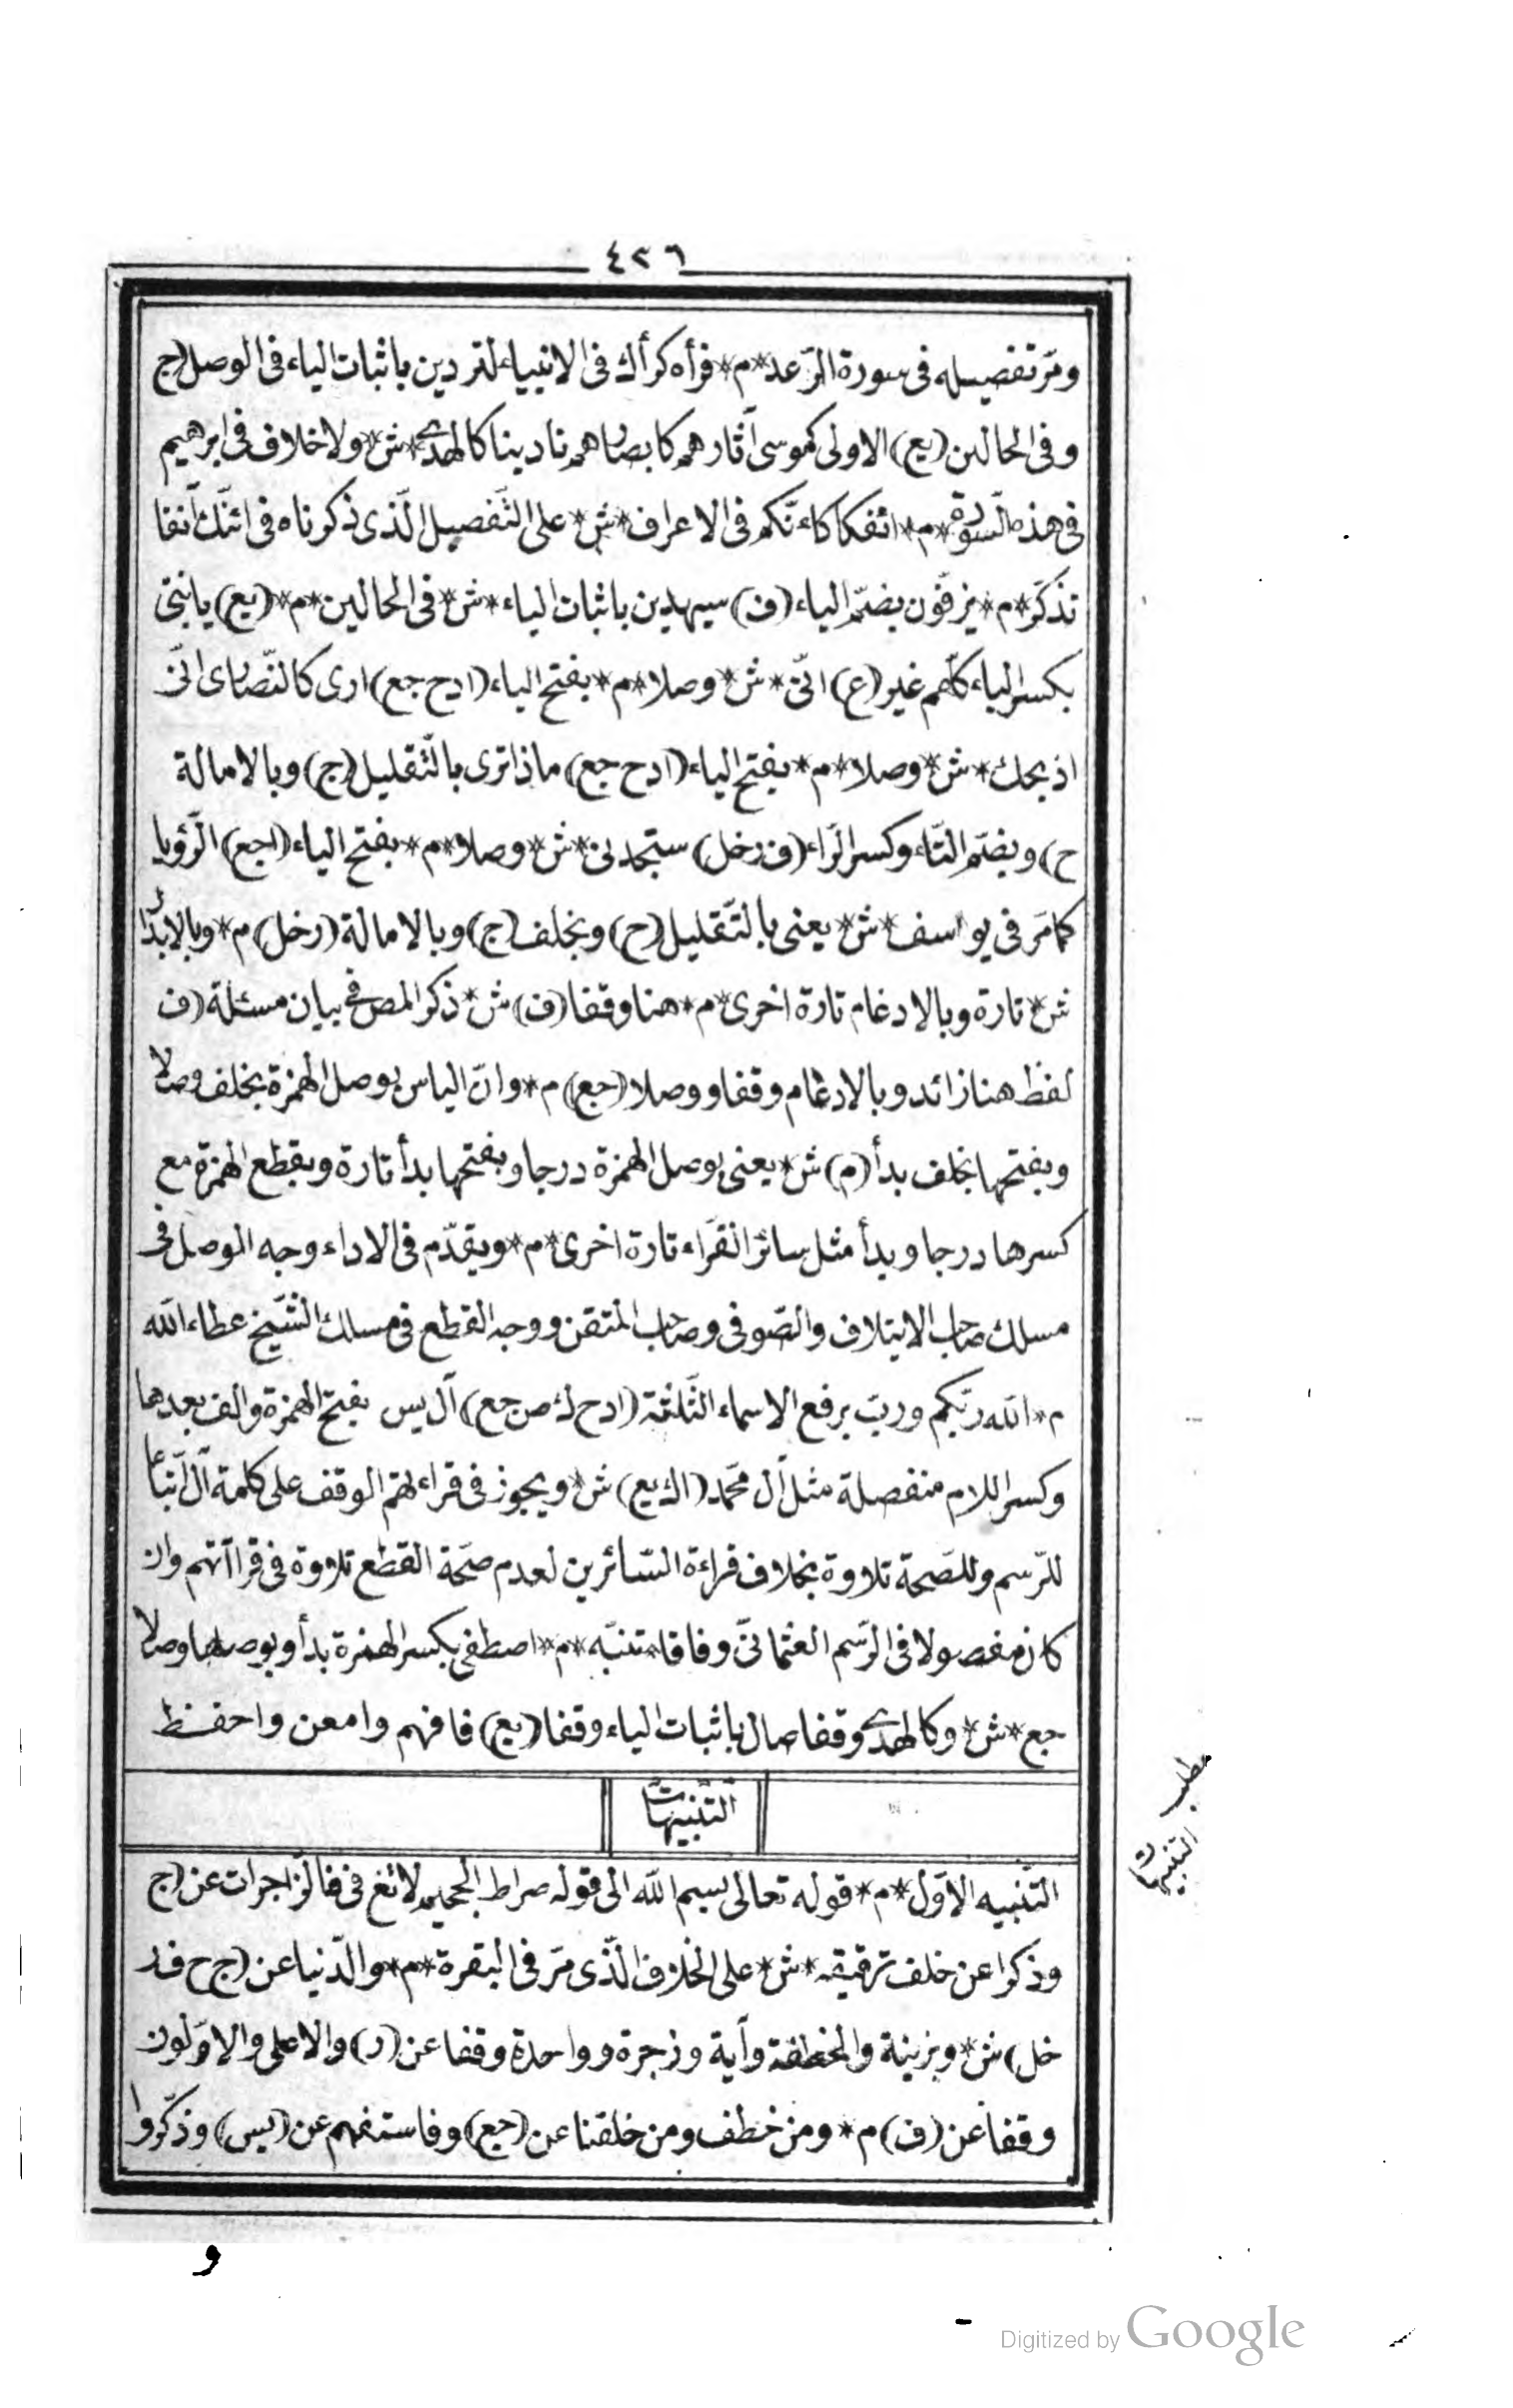 ٤٢٦
ومرّ تفصيله فى سورة الرّعد*م*فرأه كرأك فى الانبياء لتردين باثبات الياء فى الوصل (ج
وفى الحالين (يع) الاولى كموسى آثارهم كابصارهم نادينا كالهدى*ش*ولا خلاف فى ابرهيم
فى هذه السّورة*م*ائفكا كاءنّكم فى الاعراف*ش*على التّفصيل الّذى ذكرناه فى ائنّك آنفا
تذكّر*م*يزفّون بضمّ الياء (ف) سيهدين باثبات الياء*ش*فى الحالين*م*(يع) يا بنىّ
بكسر الياء كلّهم غير (ع) انّى*ش*وصلا*م*بفتح الياء (ادح جع) ارى كالنّصارى انّى
اذبحك*ش*وصلا*م*بفتح الياء (ادح جع) ماذا ترى بالتّقليل (ج) وبالامالة
ح) وبضمّ التّاء وكسر الرّاء (ف رخل) ستجدنى*ش*وصلا*م*بفتح الياء (اجع) الرّؤيا
كما مرّ فى يواسف*ش*يعنى بالتّقليل (ح) وبخلف (ج) وبالامالة (رخل) م*وبالابدال
ش*تارة وبالادغام تارة اخرى*م*هنا وقفا (ف) ش*ذكر المص فى بيان مسئلة (ف
لفظ هنا زائد وبالادغام وقفا ووصلا (جع) م*وانّ الياس بوصل الهمزة بخلف وصلا
وبفتحها بخلف بدأ (م) ش*يعنى بوصل الهمزة درجا وبفتحها بدأ تارة وبقطع الهمزة مع
كسرها درجا وبدأ مثل سائر القرّاء تارة اخرى*م*ويقدّم فى الاداء وجه الوصل فى
مسلك صاحب الايتلاف والصّوفى وصاحب المتقن ووجه القطع فى مسلك الشّيخ عطاء الله
م*الله ربّكم وربّ برفع الاسماء الثّلثة (ادح ك ص جع) آل يس بفتح الهمزة والف بعدها
وكسر اللام منفصلة مثل آل محمّد (اك يع) ش*ويجوز فى قراءتهم الوقف على كلمة آل اتّباعا
للرّسم وللصّحة تلاوة بخلاف قراءة السّائرين لعدم صحّة القطع تلاوة فى قراآتهم وان
كان مفصولا فى الرّسم العثمانىّ وفاقا*تنبّه*م*اصطفى بكسر الهمزة بدأ وبوصلها وصلا
جع*ش*وكالهدى وقفا صال باثبات الياء وقفا (يع) فافهم وامعن واحفظ
التّنبيهات
مطلب
التنبيهات
التّنبيه الاوّل*م*قوله تعالى بسم الله الى قوله صراط الجحيم لا تغ فى فالزّاجرات عن (ج
وذكرا عن خلف ترقيقه*ش*على الخلاف الّذى مرّ فى البقرة*م*والدّنيا عن (ج ح ف ر
خل) ش*وبزينة والخطفة وآية وزجرة وواحدة وقفا عن (ر) والاعلى والاوّلون
وقفا عن (ف) م*ومن خطف ومن خلقنا عن (جع) وفاستفهم عن (يس) وذكّروا
و
Digitized by Google